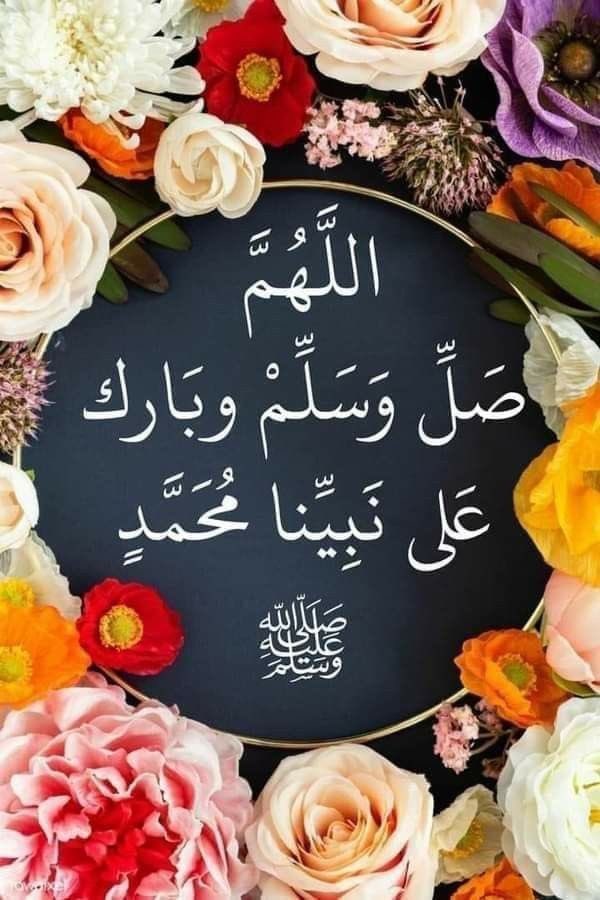 اللَّهُمَّ
صَلِّ وَسَلِّمْ وبَارك
عَلى نَبِيِّنا مُحَمَّدٍ
صَلَّى اللَّه
عَلَيْهِ
وَسَلَّمَ
rawpixel